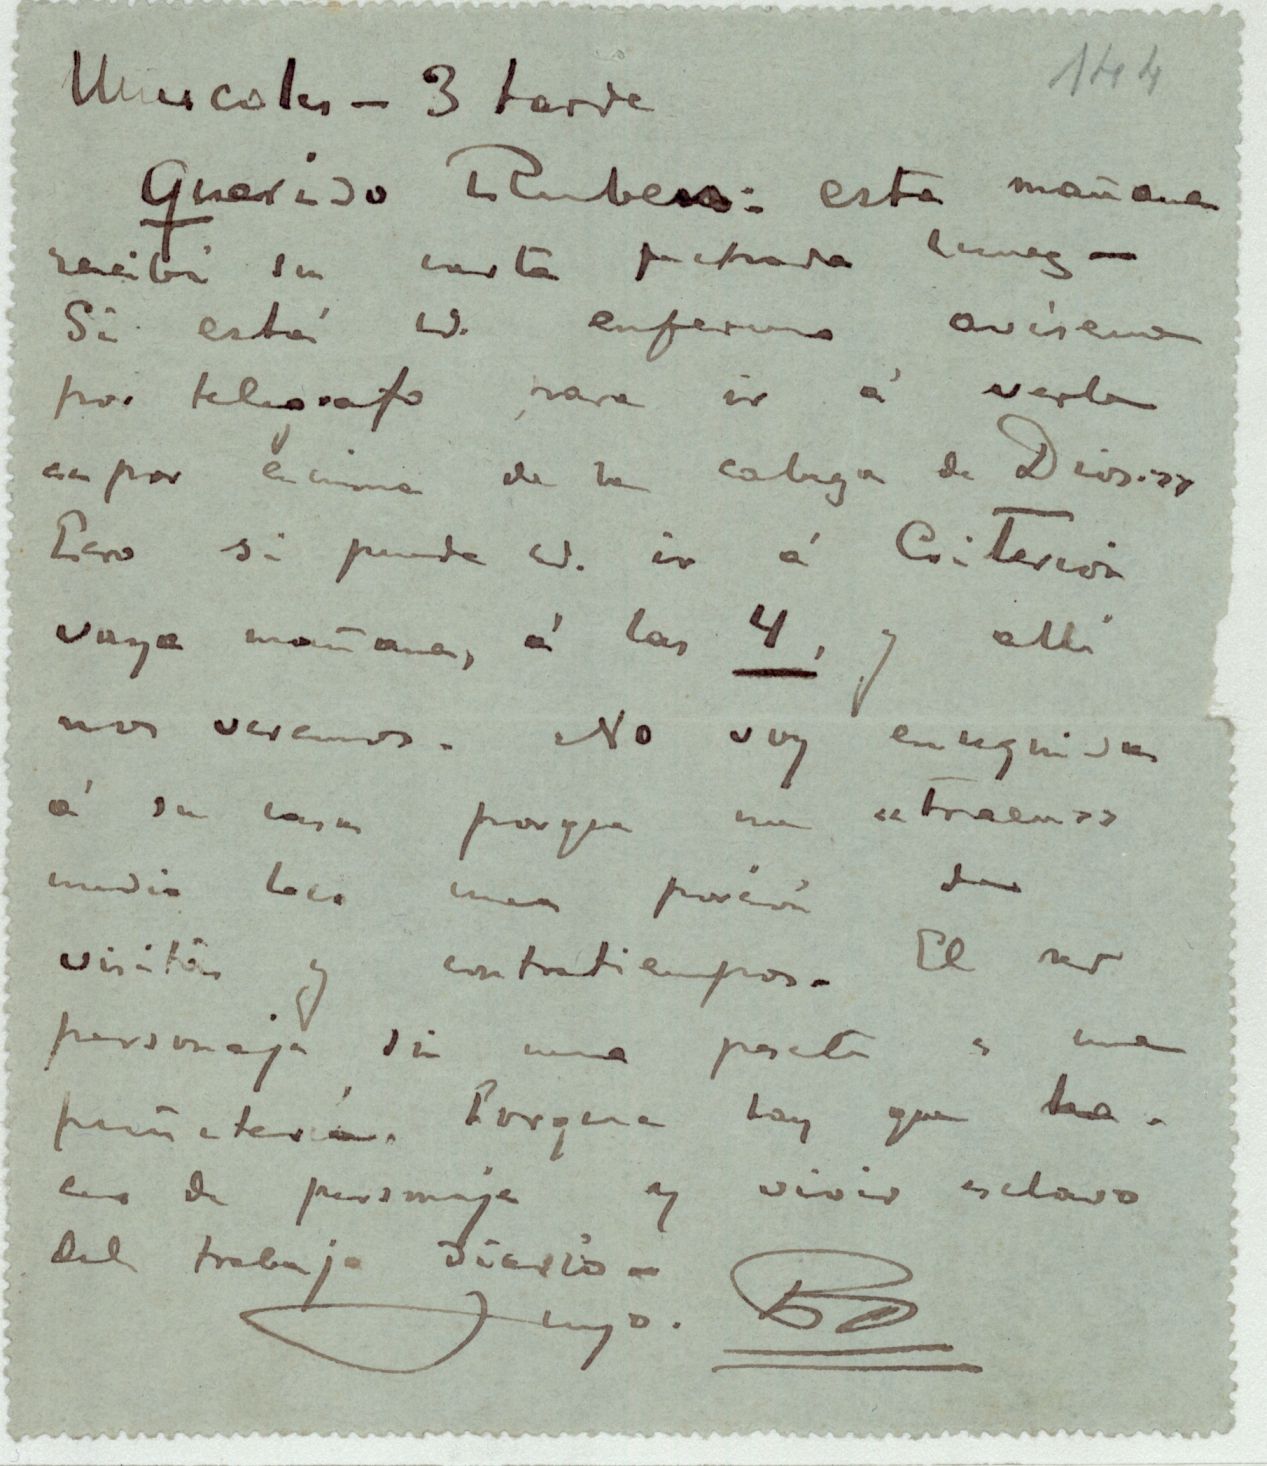 144
Miercoles - 3 tarde
Querido Ruben: esta mañana
recibí su carta fechada lunes -
Si está V. enfermo aviseme
por telegrafo para ir á verle
«por encima de la cabeza de Dios.»
Pero si puede V. ir á Criterion
vaya mañana, á las 4, y allí
nos veremos. No voy enseguida
á su casa porque me «traen»
medio loco una porción de
visitas y contratiempos. El ser
personaje sin una peseta es una
puñetería. Porque hay que ha-
cer de personaje y vivir esclavo
del trabajo diario -
Suyo.